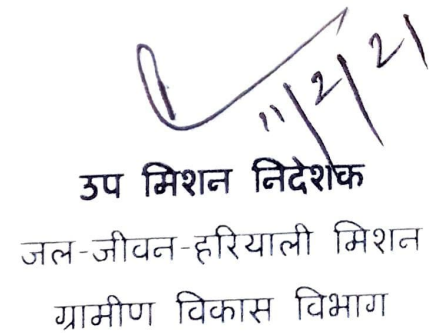 11/2/21
उप मिशन निदेशक
जल-जीवन-हरियाली मिशन
ग्रामीण विकास विभाग